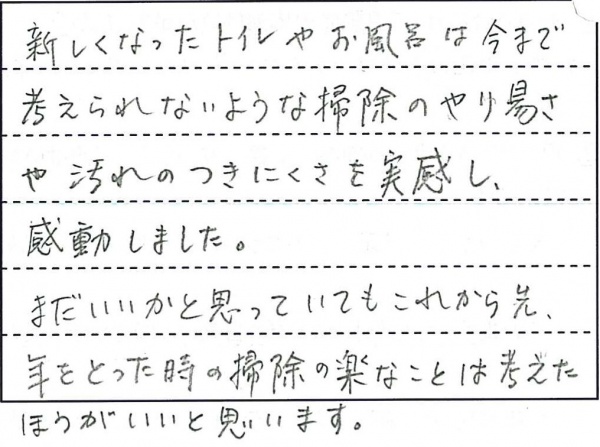 新しくなったトイレやお風呂は今まで
考えられないような掃除のやり易さ
や汚れのつきにくさを実感し、
感動しました。
まだいいかと思っていてもこれから先、
年をとった時の掃除の楽なことは考えた
ほうがいいと思います。